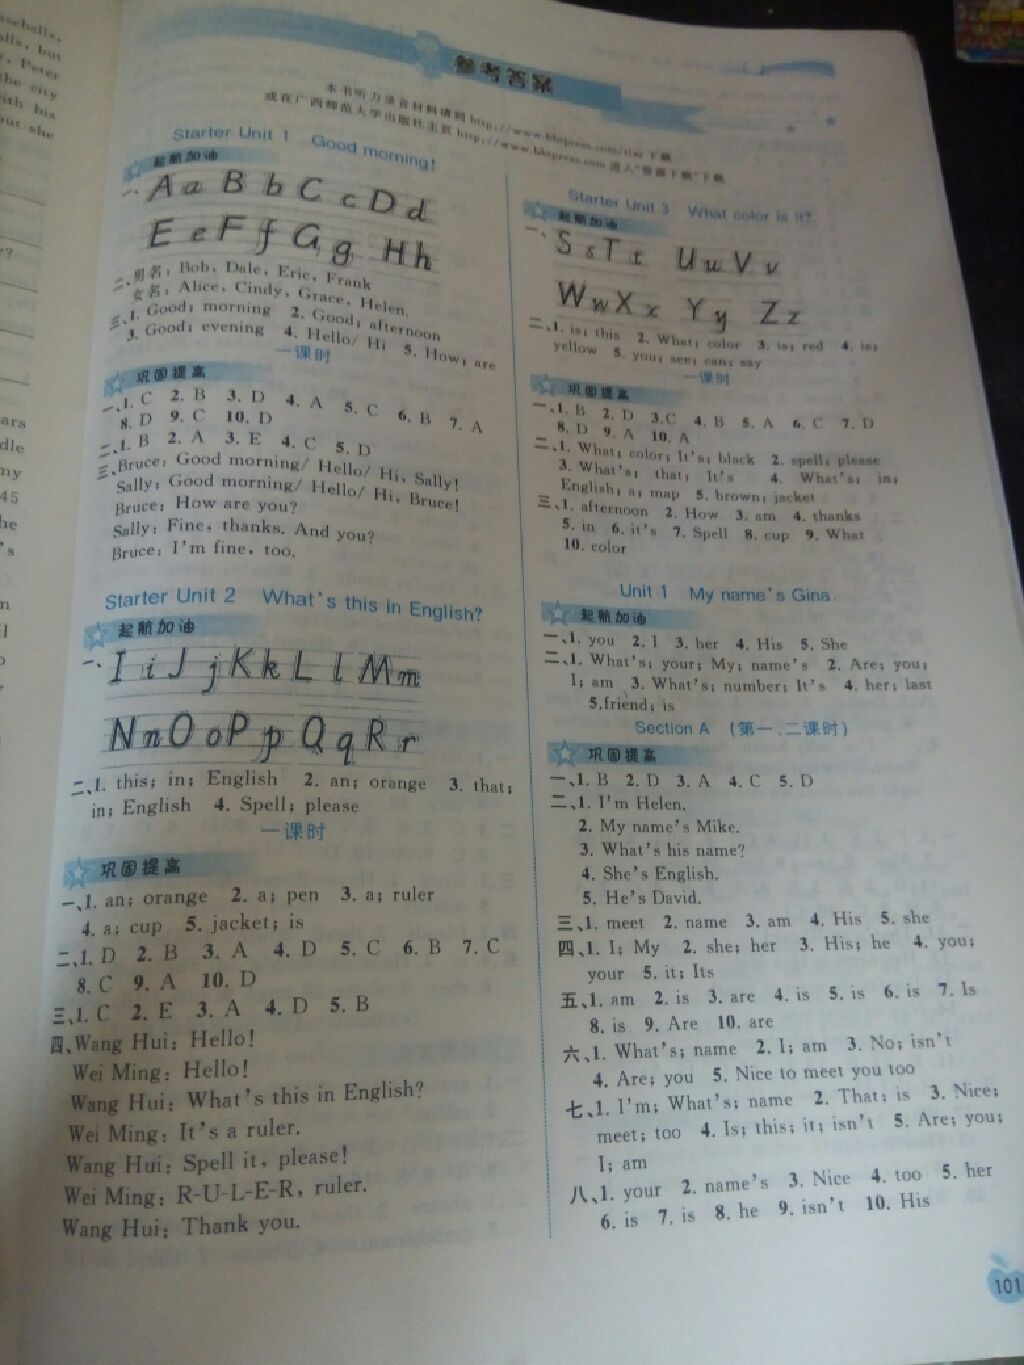 aseballs,
alls, but
r, Peter
the city
with his
but she
ars
dle
my
45
he
's
参考答案
本书听力录音材料请到 http://www.bbtpress.com/
或在广西师范大学出版社主页 http://www.bbtpress.com 进入"资源下载"下载
Starter Unit 1 Good morning!
起航加油
一、Aa Bb Cc Dd
Ee Ff Gg Hh
二、男名：Bob, Dale, Eric, Frank
女名：Alice, Cindy, Grace, Helen.
三、1. Good; morning 2. Good; afternoon
3. Good; evening 4. Hello/ Hi 5. How; are
一课时
巩固提高
一、1. C 2. B 3. D 4. A 5. C 6. B 7. A
8. D 9. C 10. D
二、1. B 2. A 3. E 4. C 5. D
三、Bruce: Good morning/ Hello/ Hi, Sally!
Sally: Good morning/ Hello/ Hi, Bruce!
Bruce: How are you?
Sally: Fine, thanks. And you?
Bruce: I'm fine, too.
Starter Unit 2 What's this in English?
起航加油
一、Ii Jj Kk Ll Mm
Nn Oo Pp Qq Rr
二、1. this; in; English 2. an; orange 3. that;
in; English 4. Spell; please
一课时
巩固提高
一、1. an; orange 2. a; pen 3. a; ruler
4. a; cup 5. jacket; is
二、1. D 2. B 3. A 4. D 5. C 6. B 7. C
8. C 9. A 10. D
三、1. C 2. E 3. A 4. D 5. B
四、Wang Hui: Hello!
Wei Ming: Hello!
Wang Hui: What's this in English?
Wei Ming: It's a ruler.
Wang Hui: Spell it, please!
Wei Ming: R-U-L-E-R, ruler.
Wang Hui: Thank you.
Starter Unit 3 What color is it?
起航加油
一、Ss Tt Uu Vv
Ww Xx Yy Zz
二、1. is; this 2. What; color 3. is; red 4. is;
yellow 5. you; see; can; say
一课时
巩固提高
一、1. B 2. D 3. C 4. B 5. A 6. C 7. D
8. D 9. A 10. A
二、1. What; color; It's; black 2. spell; please
3. What's; that; It's 4. What's; in;
English; a; map 5. brown; jacket
三、1. afternoon 2. How 3. am 4. thanks
5. in 6. it's 7. Spell 8. cup 9. What
10. color
Unit 1 My name's Gina.
起航加油
一、1. you 2. I 3. her 4. His 5. She
二、1. What's; your; My; name's 2. Are; you;
I; am 3. What's; number; It's 4. her; last
5. friend; is
Section A (第一、二课时)
巩固提高
一、1. B 2. D 3. A 4. C 5. D
二、1. I'm Helen.
2. My name's Mike.
3. What's his name?
4. She's English.
5. He's David.
三、1. meet 2. name 3. am 4. His 5. she
四、1. I; My 2. she; her 3. His; he 4. you;
your 5. it; Its
五、1. am 2. is 3. are 4. is 5. is 6. is 7. Is
8. is 9. Are 10. are
六、1. What's; name 2. I; am 3. No; isn't
4. Are; you 5. Nice to meet you too
七、1. I'm; What's; name 2. That; is 3. Nice;
meet; too 4. Is; this; it; isn't 5. Are; you;
I; am
八、1. your 2. name's 3. Nice 4. too 5. her
6. is 7. is 8. he 9. isn't 10. His
101